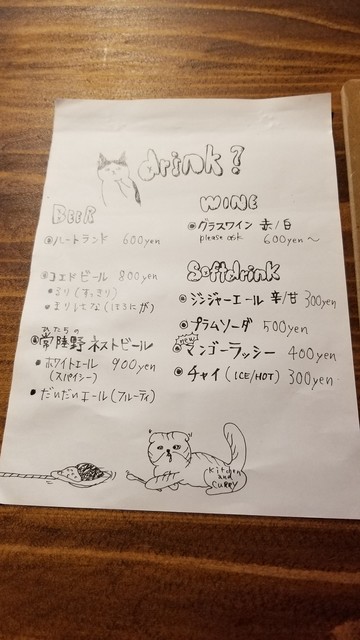 drink?
BEER
ハートランド 600yen
コエドビール 800yen
・るり(すっきり)
・まりはな(ほろにが)
ひたちの
常陸野ネストビール
・ホワイトエール 900yen
(スパイシー)
・だいだいエール(フルーティ)
WINE
グラスワイン 赤/白
please ask 600yen〜
Softdrink
ジンジャーエール 辛/甘 300yen
プラムソーダ 500yen
new
マンゴーラッシー 400yen
チャイ(ICE/HOT) 300yen
Kitchen
and
CURRY